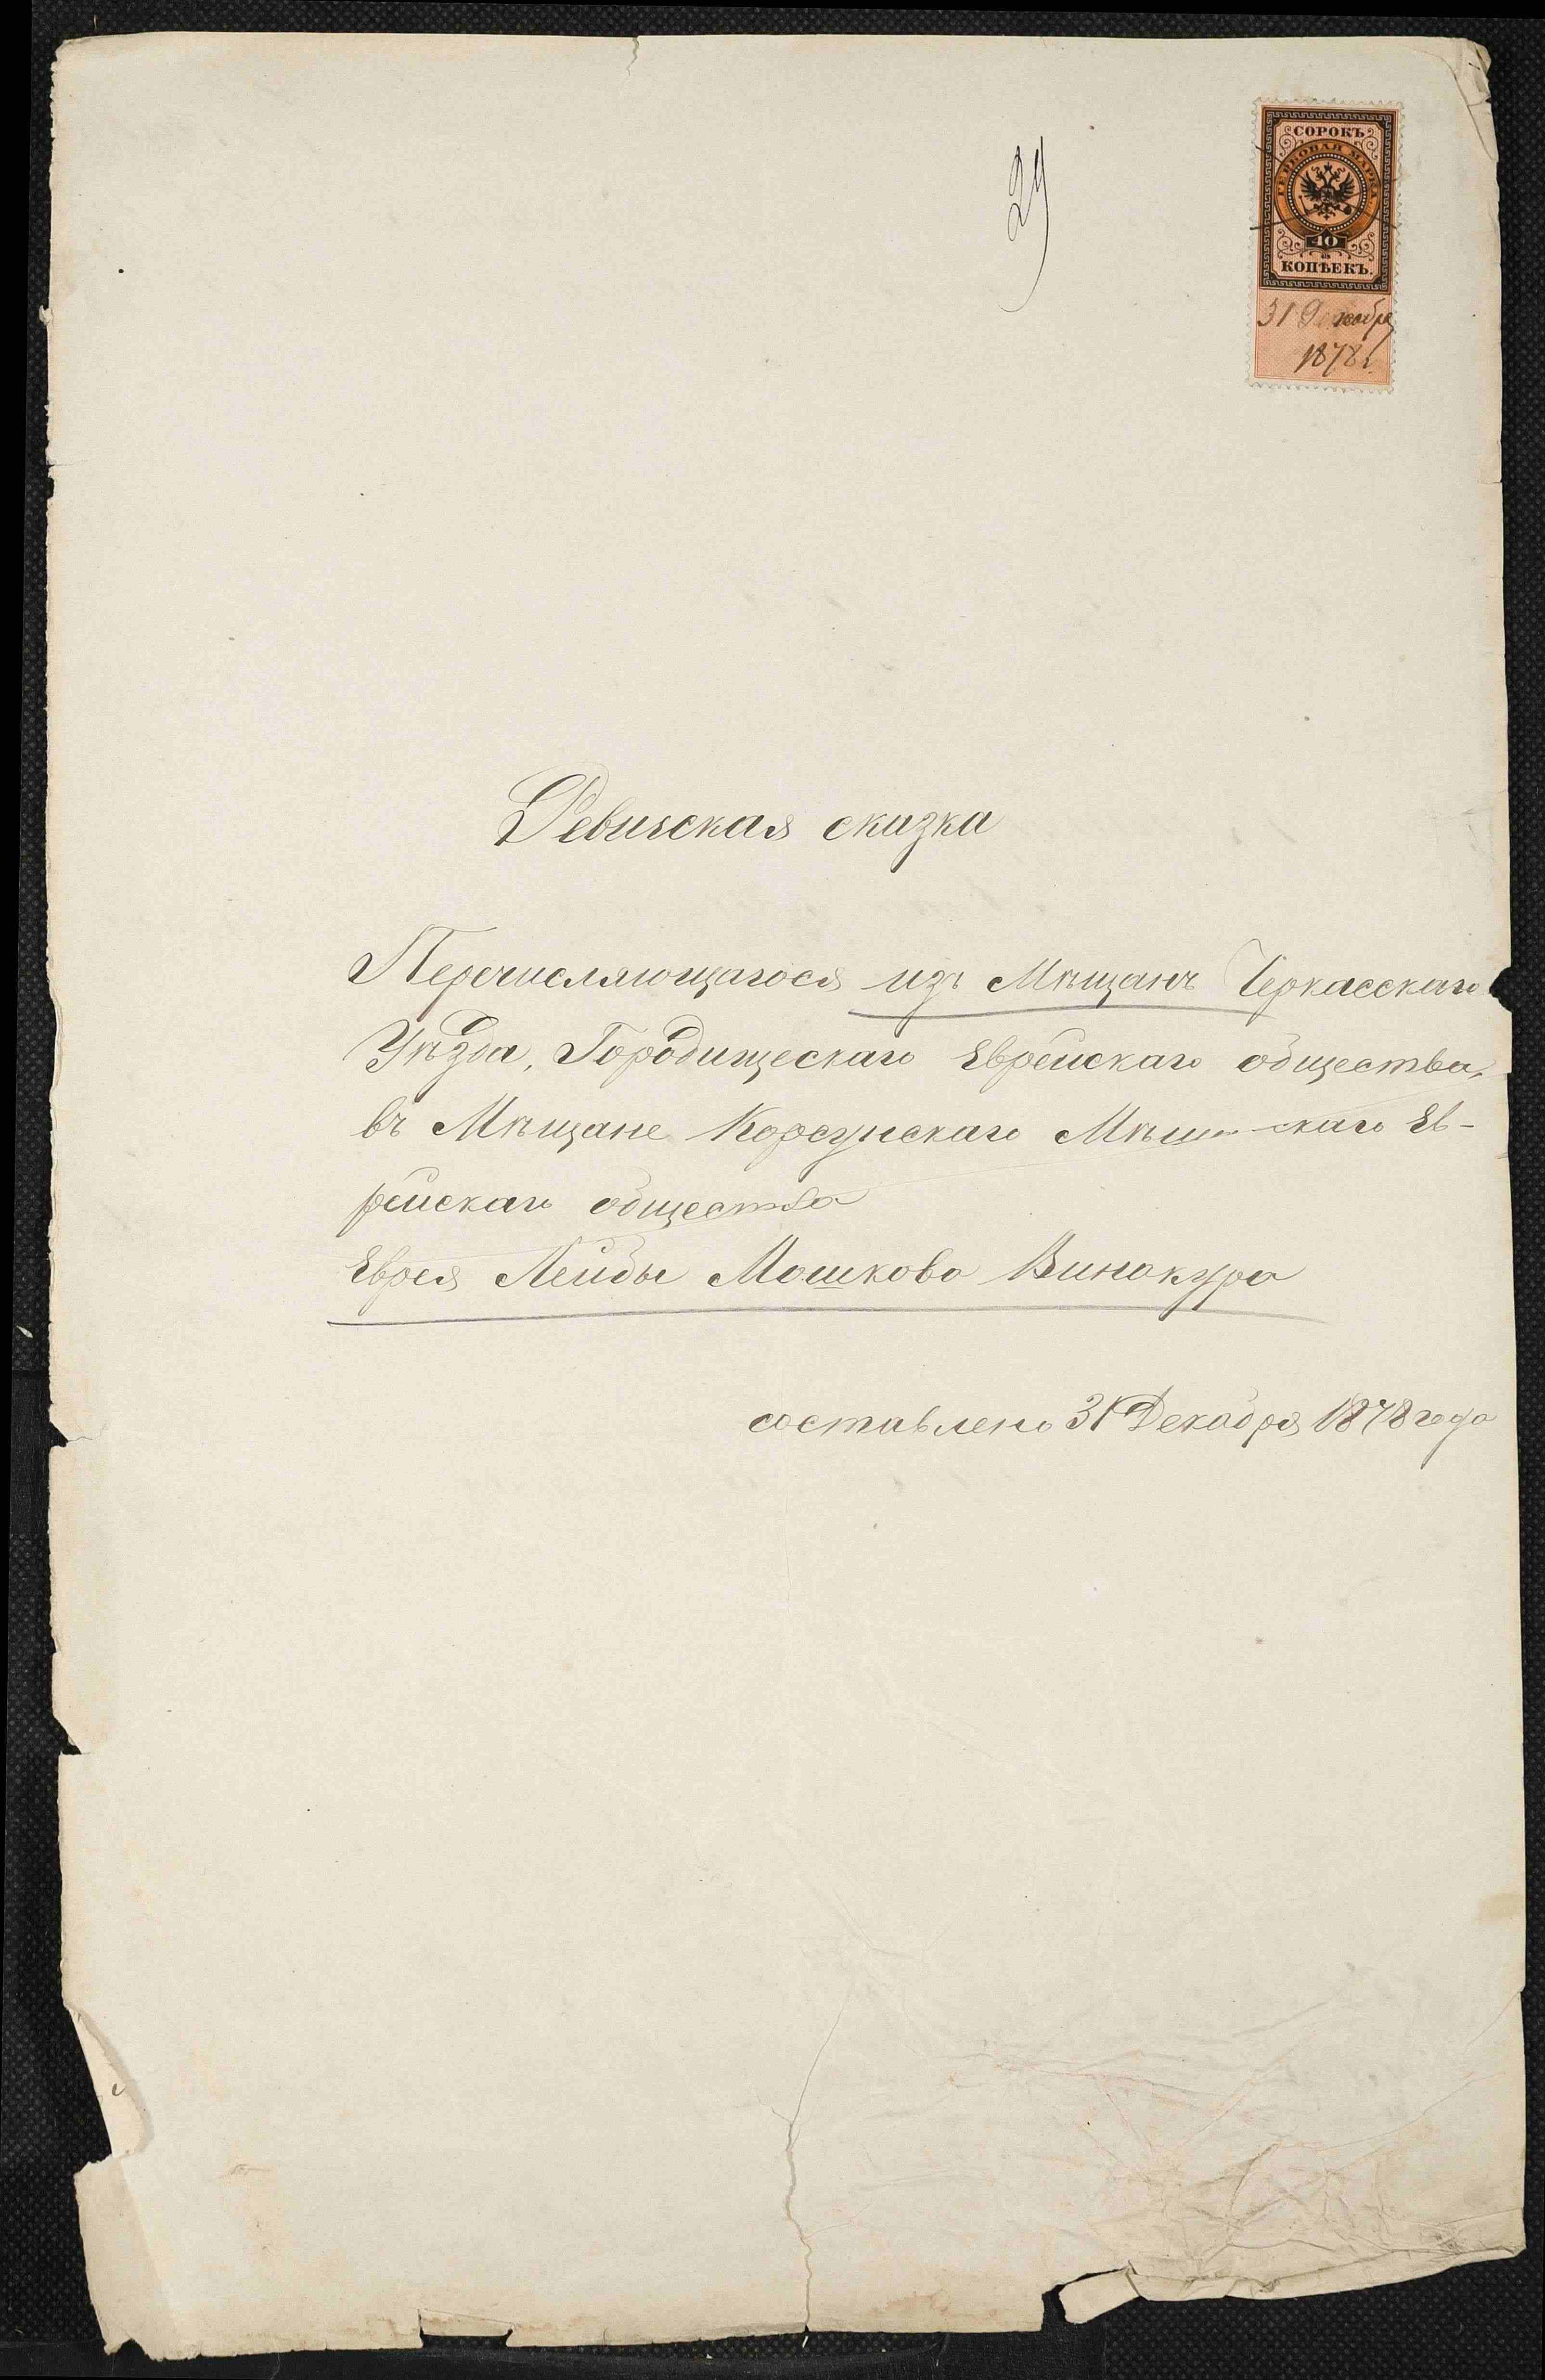 29
СОРОКЪ
ГЕРБОВАЯ МАРКА
40
КОПѢЕКЪ.
31 Декабря
1878 г.
Ревизская сказка
Перечисляющагося изъ Мѣщанъ Черкасскаго
Уѣзда, Городищескаго Еврейскаго общества,
въ Мѣщане Корсунскаго Мѣщанскаго Ев-
рейскаго общества
Еврея Лейбы Мошкова Винокура
составлено 31 Декабря 1878 года